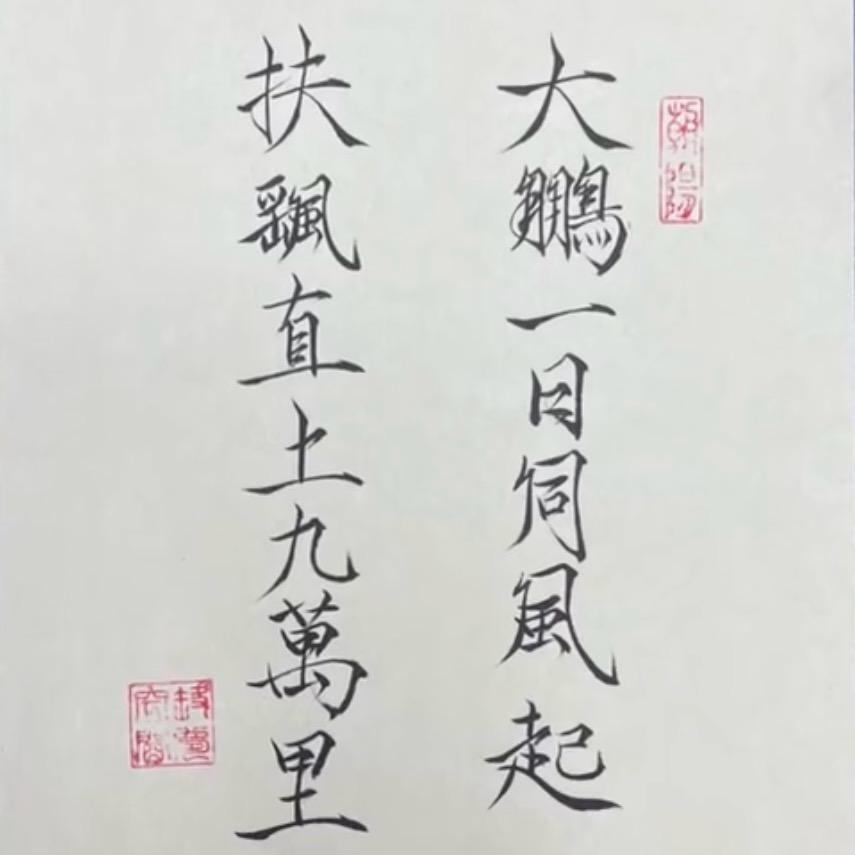 大鵬一日同風起
扶飄直上九萬里
朝陽